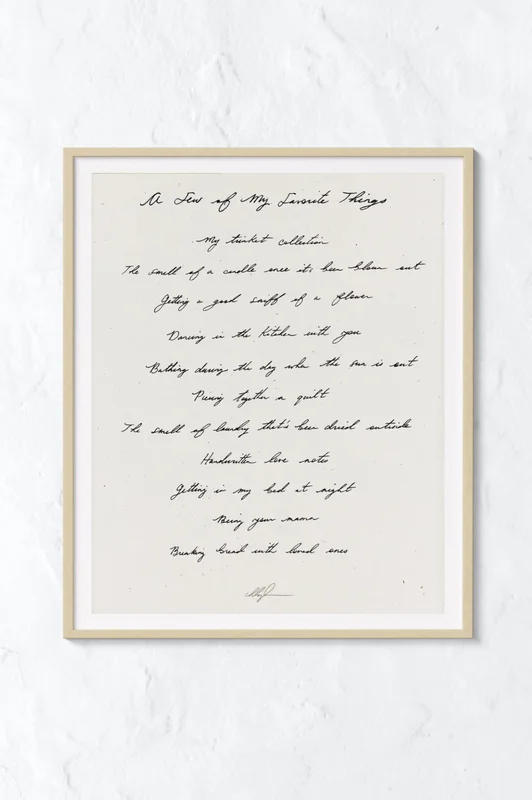 A Few of My Favorite Things
My trinket collection
The smell of a candle once it's been blown out
Getting a good sniff of a flower
Dancing in the kitchen with you
Bathing during the day when the sun is out
Piecing together a quilt
The smell of laundry that's been dried outside
Handwritten love notes
Getting in my bed at night
Being your mama
Breaking bread with loved ones